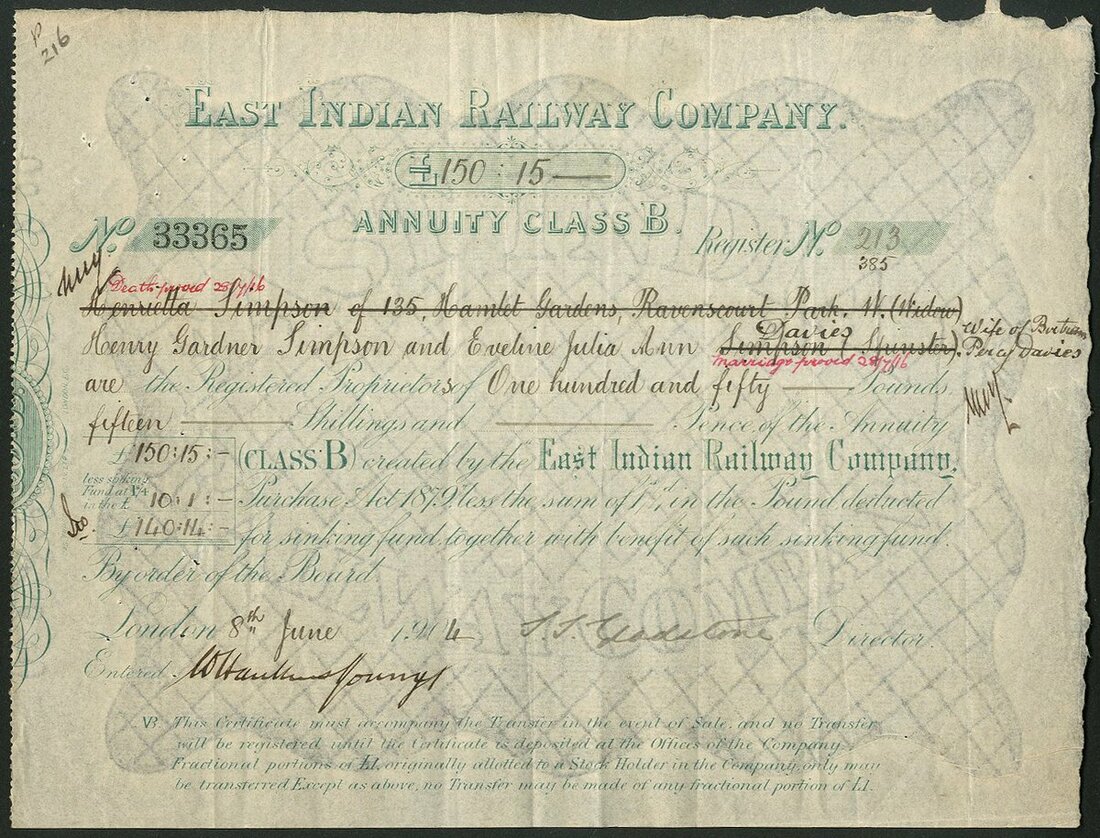 216
EAST INDIAN RAILWAY COMPANY.
£150 : 15 —
ANNUITY CLASS B.
No. 33365
Register No. 213
385
Death proved 28/7/16
Henrietta Simpson of 135, Hamlet Gardens, Ravenscourt Park. W. (Widow)
Davies
Henry Gardner Simpson and Eveline Julia Ann Simpson (Spinster). Wife of Bertram Percy Davies
marriage proved 28/7/16
are the Registered Proprietors of One hundred and fifty — Pounds
fifteen — Shillings and — Pence of the Annuity
£150:15:-
(CLASS B) created by the East Indian Railway Company,
less sinking Fund at 1/4 in the £ 10:1:-
Purchase Act 1879 less the sum of 1/4 in the Pound deducted
£140:14:-
for sinking fund, together with benefit of such sinking fund.
By order of the Board
London 8th June 1904
Director.
Entered
NB. This Certificate must accompany the Transfer in the event of Sale, and no Transfer
will be registered until the Certificate is deposited at the Offices of the Company.
Fractional portions of £1, originally allotted to a Stock Holder in the Company, only may
be transferred Except as above, no Transfer may be made of any fractional portion of £1.